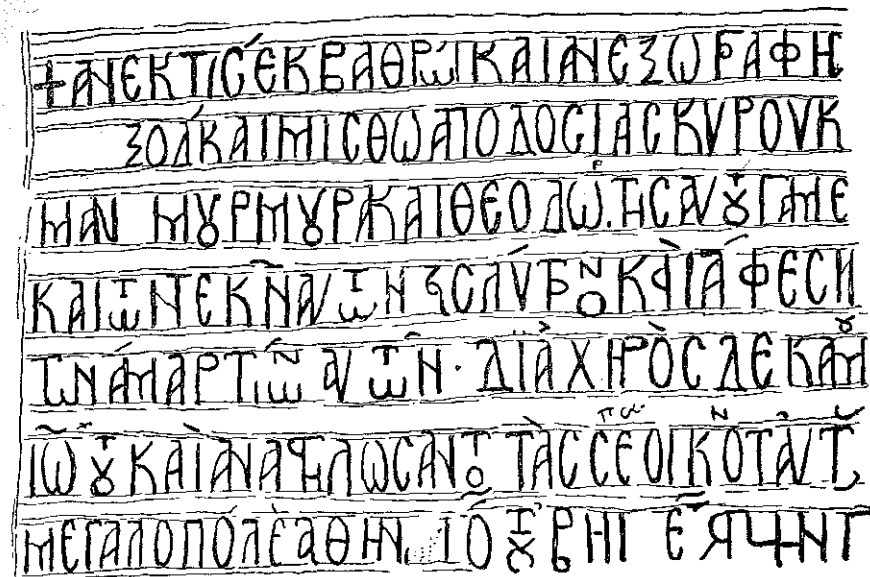 +ΑΝΕΚΤΙCΕΚΒΑΘΡΩΚΑΙΑΝΕΖΩΓΡΑΦΗ
ΞΟΔΚΑΙΜΙCΘΩΑΠΟΔΟCΙΑCΚΥΡΟΥΚ
ΜΑΝ ΜȢΡΜȢΡΚΑΙΘΕΟΔΩΡ.ΤΗCΑΥΤȢΓΑΜΕ
ΚΑΙΤΩΝΤΕΚΝΑΥΤΩΝ ϚCΛΥΤΡΟΝΚΑΙΑΦΕCΗ
ΤΩΝΑΜΑΡΤΙΩΝΑΥΤΩΝ·ΔΙΑΧΗΡΟCΔΕΚΑΜȢ
ΙΩΤȢΚΑΙΑΝΑΤΗΛΩCΑΝΤΟ ΤΑCCΕΠΩΟΙΚΟΝΤΑΥΤ
ΜΕΓΑΛΟΠΟΛΕΑΘΗΝ